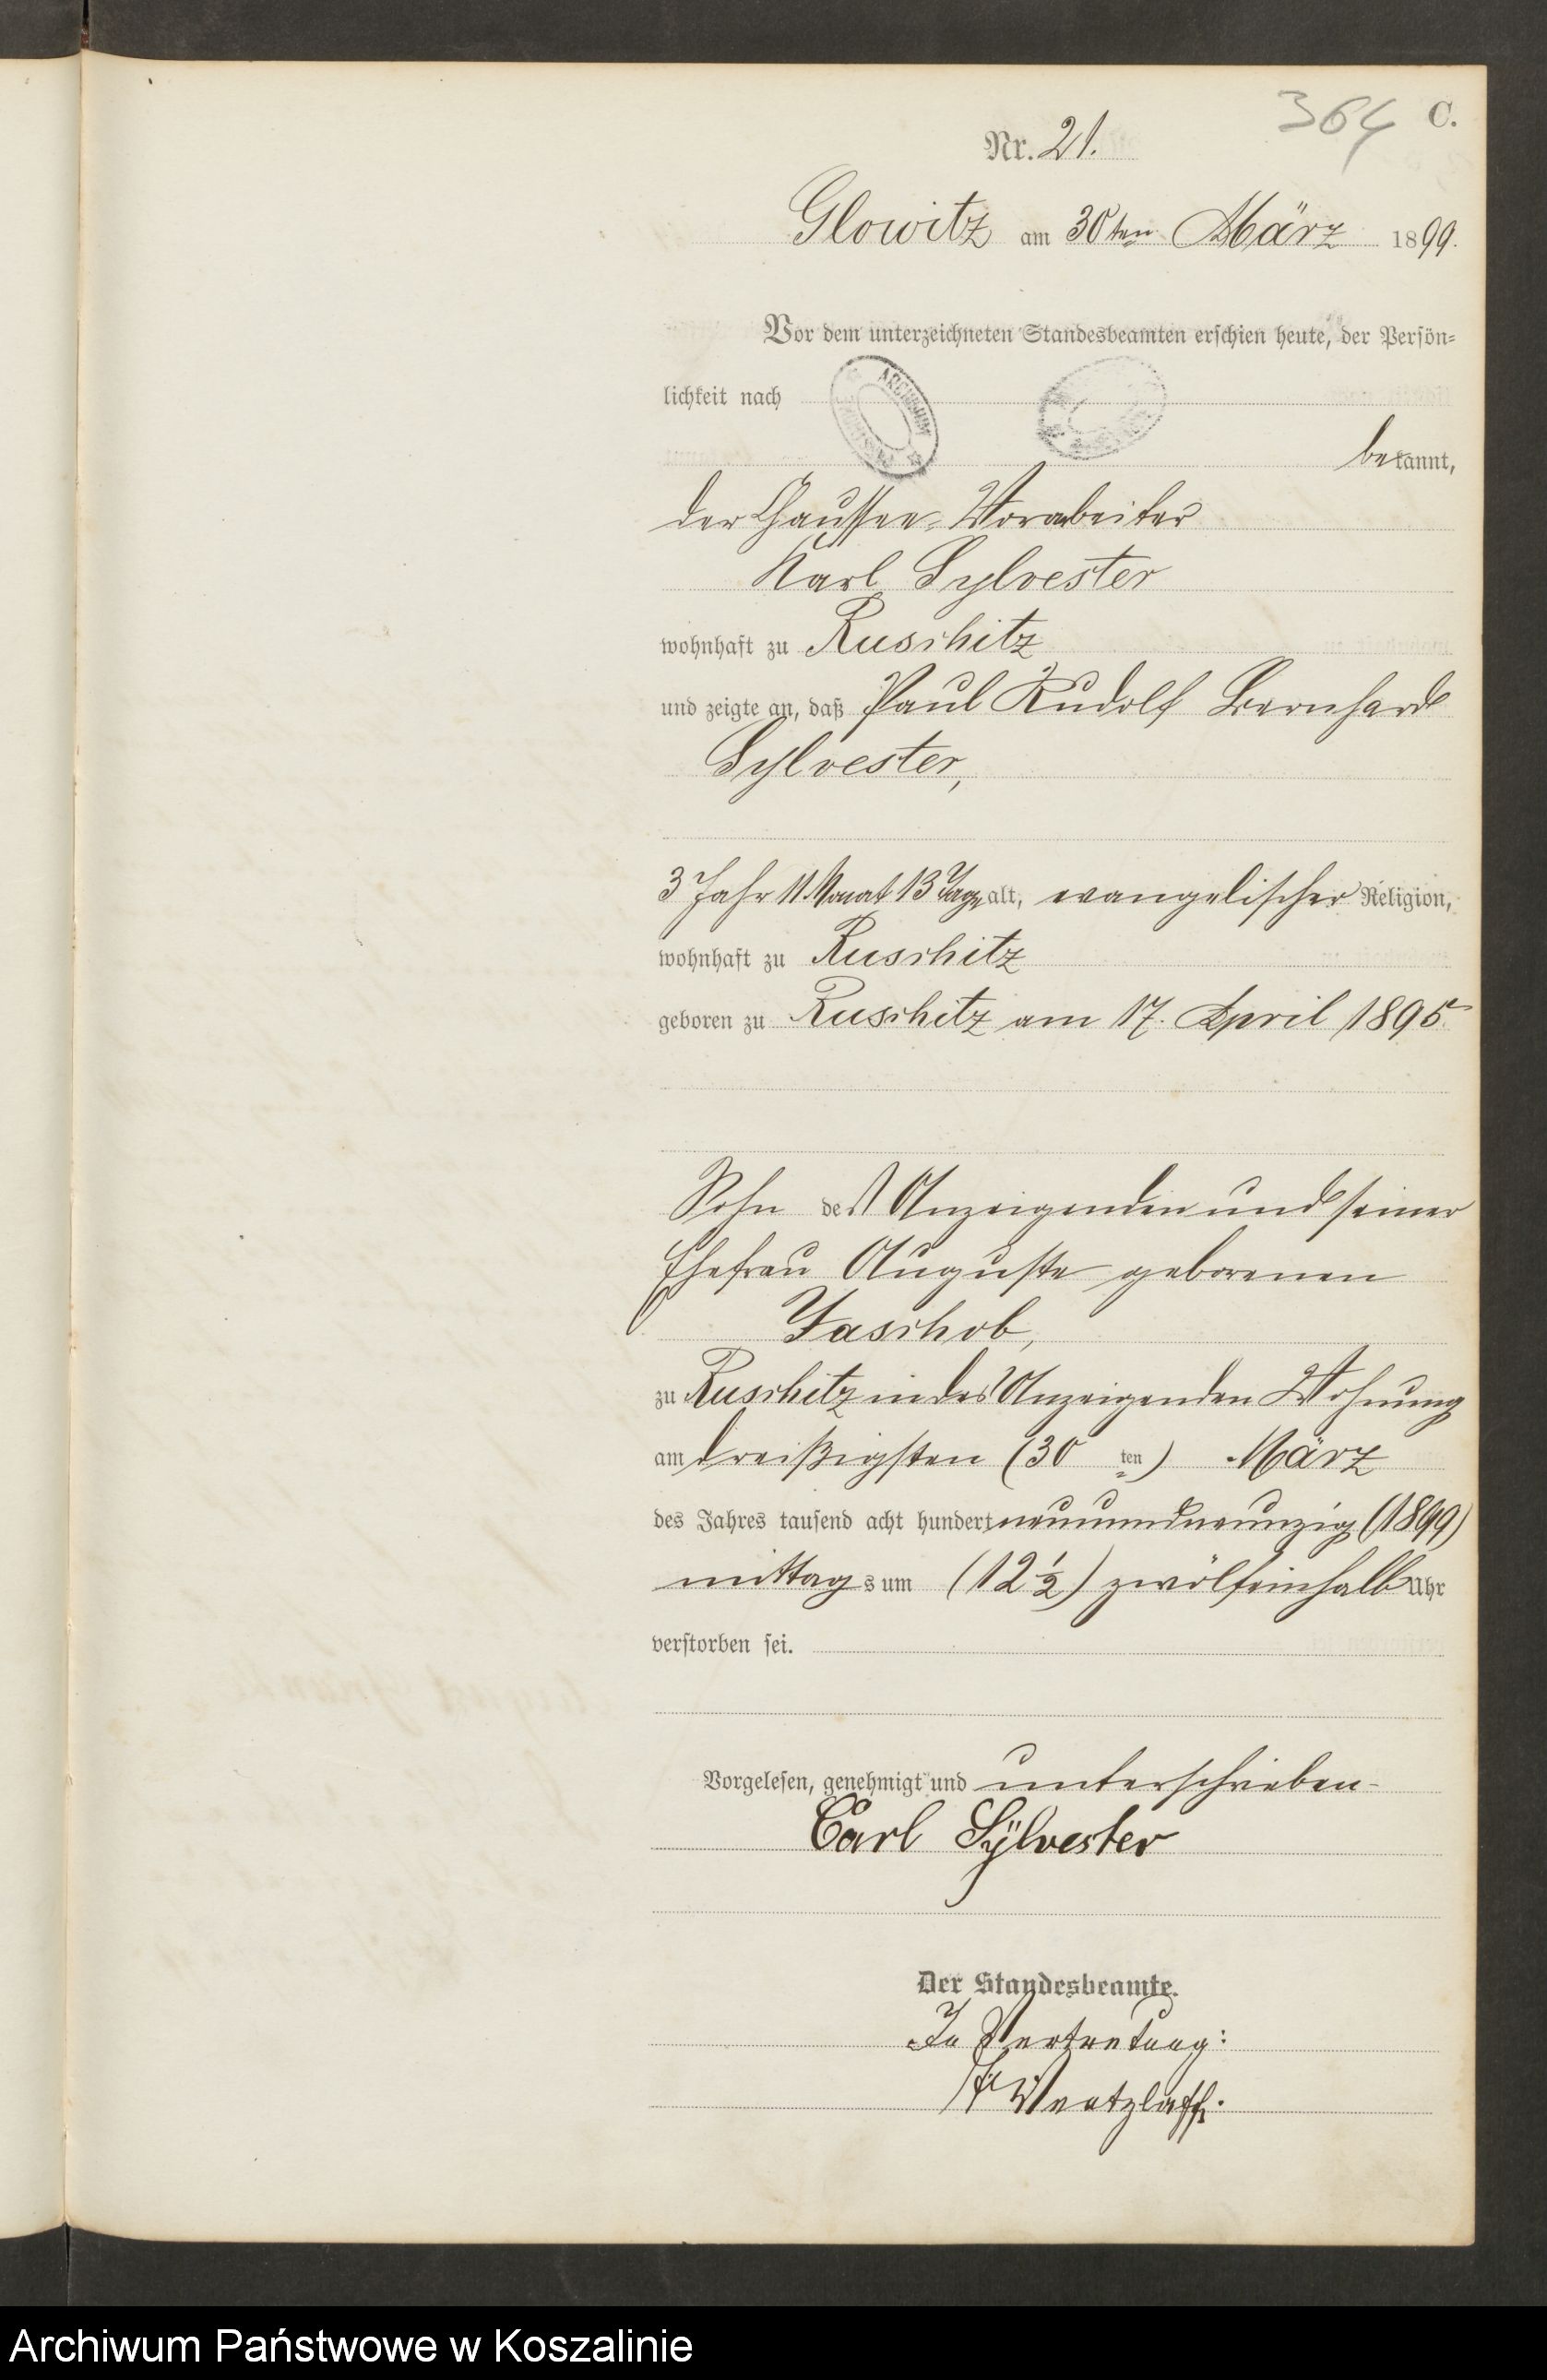 364 C.
Nr. 21.
Glowitz am 30ten März 1899.
Vor dem unterzeichneten Standesbeamten erschien heute, der Persön-
lichkeit nach
ARCHIWUM
bekannt,
der Chaussee-Vorarbeiter
Karl Sylvester
wohnhaft zu Ruschitz
und zeigte an, daß Paul Rudolf Bernhard
Sylvester,
3 Jahr 11 Monat 13 Tage alt, evangelischer Religion,
wohnhaft zu Ruschitz
geboren zu Ruschitz am 17. April 1895
Sohn des Anzeigenden und seiner
Ehefrau Auguste geborenen
Jaschob,
zu Ruschitz in des Anzeigenden Wohnung
am dreißigsten (30 ten) März
des Jahres tausend acht hundert neunundneunzig (1899)
mittags um (12 ½) zwölfeinhalb Uhr
verstorben sei.
Vorgelesen, genehmigt und unterschrieben-
Carl Sÿlvester
Der Standesbeamte.
In Vertretung:
Wentzlaff.
Archiwum Państwowe w Koszalinie